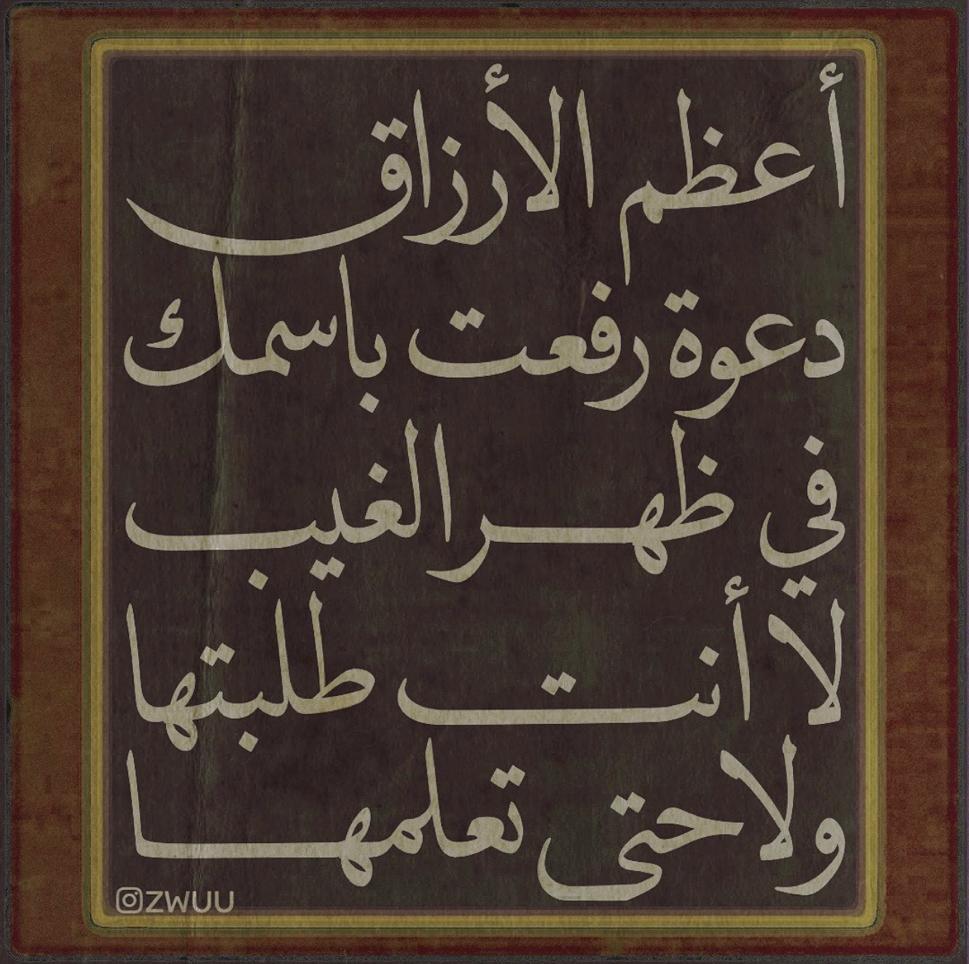 أعظم الأرزاق
دعوة رفعت باسمك
في ظهر الغيب
لا أنت طلبتها
ولا حتى تعلمها
ZWUU